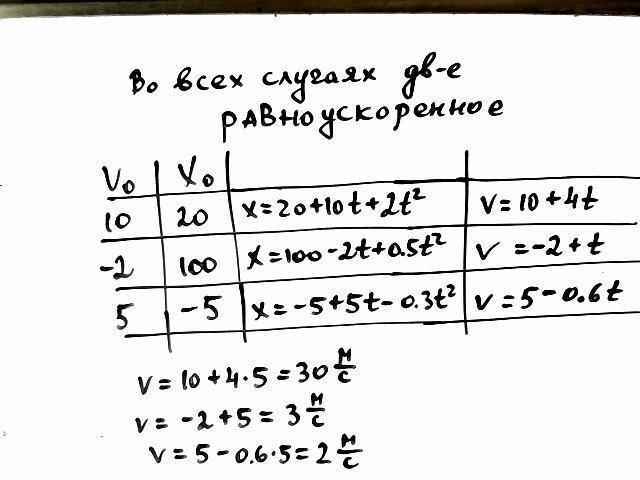 Во всех случаях дв-е
равноускоренное
V₀ X₀
10 20 x=20+10t+2t² V=10+4t
-2 100 x=100-2t+0.5t² V=-2+t
5 -5 x=-5+5t-0.3t² V=5-0.6t
V=10+4·5=30 м/с
V=-2+5=3 м/с
V=5-0.6·5=2 м/с